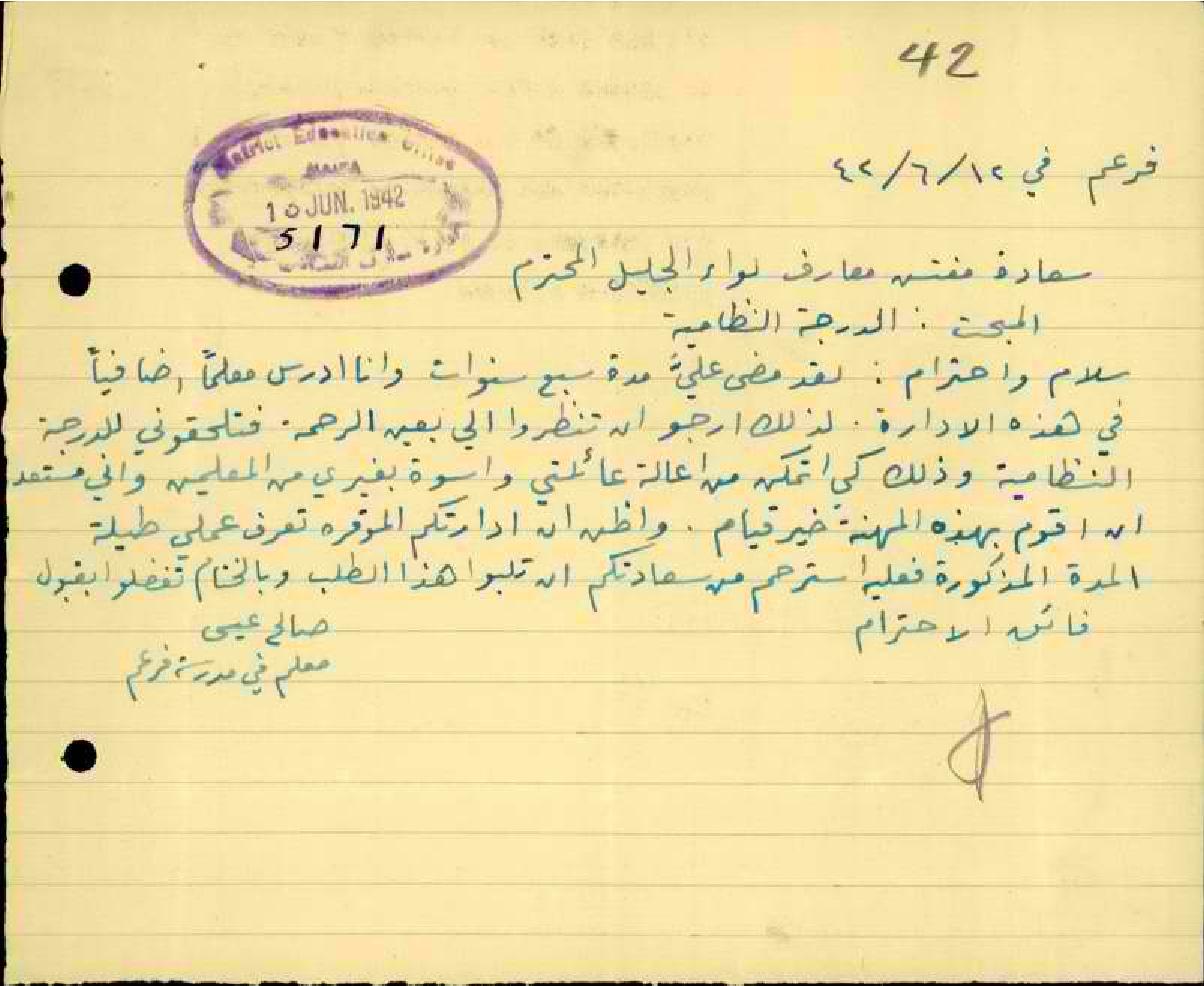 42
District Education Office
HAIFA
10 JUN. 1942
5171
فرعم في ٤٢/٦/١٢
سعادة مفتش معارف لواء الجليل المحترم
المبحث : الدرجة النظامية
سلام واحترام : لقد مضى عليَّ مدة سبع سنوات وانا ادرس معلماً اضافياً
في هذه الادارة . لذلك ارجو ان تنظروا الي بعين الرحمة . فتلحقوني للدرجة
النظامية وذلك كي اتمكن من اعالة عائلتي واسوة بغيري من المعلمين واني مستعد
ان اقوم بهذه المهنة خير قيام . واظن ان ادارتكم الموقره تعرف عملي طيلة
المدة المذكورة فعليه استرحم من سعادتكم ان تلبوا هذا الطلب وبالختام تفضلوا بقبول
فائق الاحترام
صالح عيسى
معلم في مدرسة فرعم